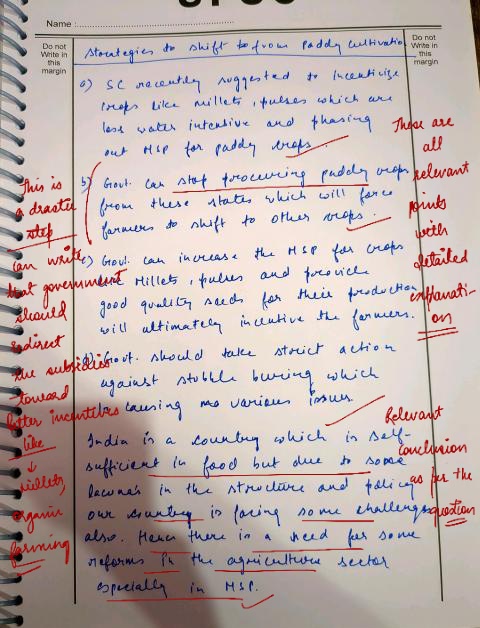 Name :
Do not
Write in
this
margin
Do not
Write in
this
margin
Strategies to shift to from Paddy cultivation
a) SC recently suggested to incentivize
crops like millets, pulses which are
less water intensive and phasing
out MSP for paddy crops.
b) Govt. can stop procuring paddy crops
from these states which will force
farmers to shift to other crops.
c) Govt. can increase the MSP for crops
like Millets, pulses and provide
good quality seeds for their production
will ultimately incentive the farmers.
d) Govt. should take strict action
against stubble buring which
is causing various issues
India is a country which is self-
sufficient in food but due to some
lacuna's in the structure and policy
our country is facing some challenges
also. Hence there is a need for some
reforms in the agriculture sector
especially in MSP.
This is
a drastic
step
can write
that government
should
redirect
the subsidies
toward
better incentives
like
millets,
organic
farming
These are
all
relevant
points
with
detailed
explanati-
on
Relevant
conclusion
as per the
question